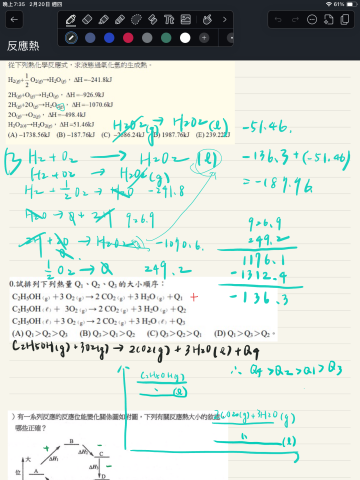 晚上7:35 2月20日 週四
61%
反應熱
從下列熱化學反應式，求液態過氧化氫的生成熱。
H₂(g)+1/2 O₂(g)→H₂O(g)，ΔH=-241.8kJ
2H(g)+O(g)→H₂O(g)，ΔH=-926.9kJ
2H(g)+2O(g)→H₂O₂(g)，ΔH=-1070.6kJ
2O(g)→O₂(g)，ΔH=-498.4kJ
H₂O₂(l)→H₂O₂(g)，ΔH=51.46kJ
(A) -1738.56kJ (B) -187.76kJ (C) -2686.24kJ (D) 1987.76kJ (E) 239.22kJ
H2O2(g) → H2O2(l) -51.46.
H2 + O2 → H2O2 (l) -136.3 + (-51.46)
H2 + O2 → H2O2(g) = -187.96
H2 + 1/2 O2 → H2O -241.8
926.9
-1070.6.
1/2 O2 → O 249.2
926.9
249.2
1176.1
-1312.4
-136.3
0.試排列下列熱量 Q₁、Q₂、Q₃ 的大小順序：
C₂H₅OH(g) + 3 O₂(g) → 2 CO₂(g) + 3 H₂O(g) + Q₁ +
C₂H₅OH(l) + 3O₂(g) → 2 CO₂(g) + 3 H₂O(l) + Q₂
C₂H₅OH(l) + 3 O₂(g) → 2 CO₂(g) + 3 H₂O(g) + Q₃
(A) Q₁>Q₂>Q₃ (B) Q₃>Q₁>Q₂ (C) Q₃>Q₂>Q₁ (D) Q₂>Q₁>Q₃。
C2H5OH(g) + 3O2(g) → 2CO2(g) + 3H2O(l) + Q4
∴ Q4 > Q2 > Q1 > Q3
C2H5OH(g)
(l)
2CO2(g) + 3H2O (g)
(l)
）有一系列反應的反應位能變化關係圖如附圖，下列有關反應熱大小的敘述
哪些正確？
大
位
A
B
C
D
ΔH₁
ΔH₂
ΔH₃
+
-